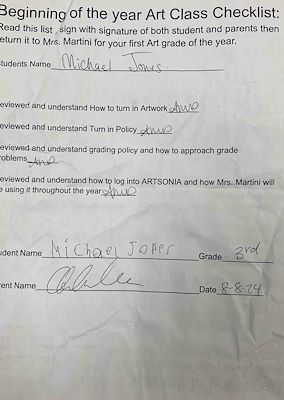 Beginning of the year Art Class Checklist:
Read this list , sign with signature of both student and parents then
eturn it to Mrs. Martini for your first Art grade of the year.
tudents Name Michael Jones
eviewed and understand How to turn in Artwork
eviewed and understand Turn in Policy
eviewed and understand grading policy and how to approach grade
roblems
eviewed and understand how to log into ARTSONIA and how Mrs. Martini will
e using it throughout the year
udent Name Michael Jones Grade 3rd
ent Name
Date 8-8-24